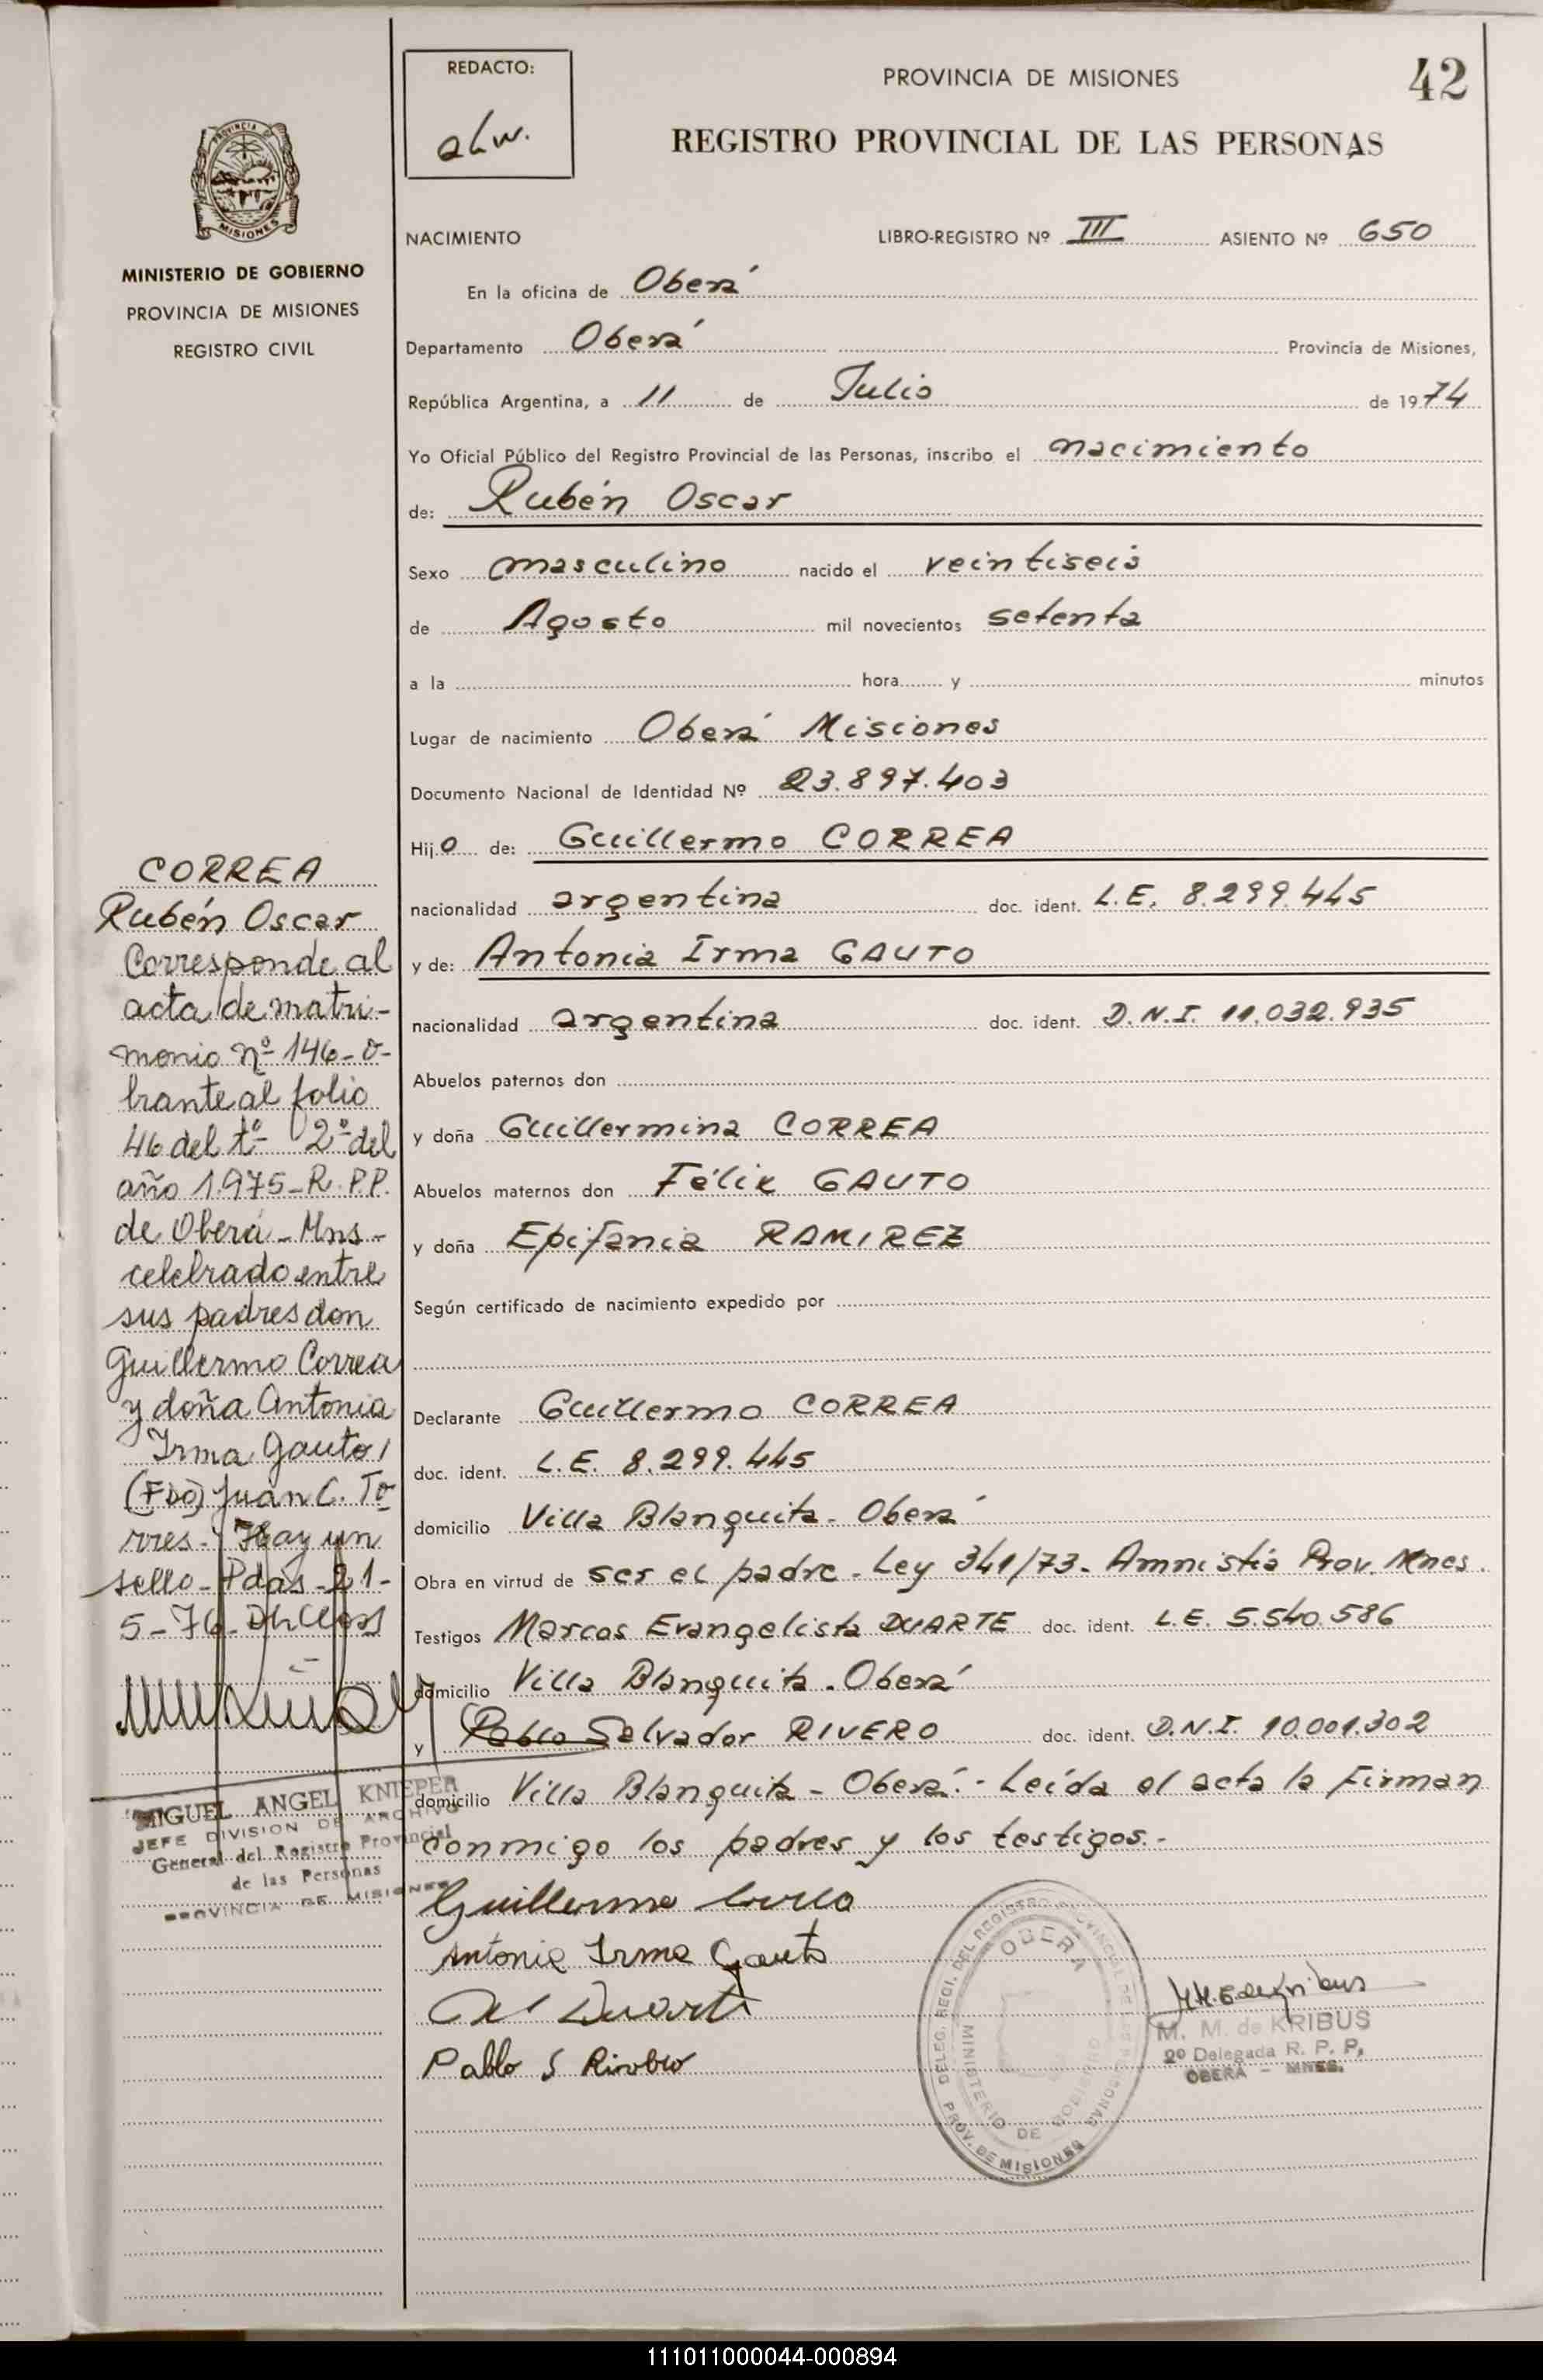 REDACTO:
PROVINCIA DE MISIONES
42
REGISTRO PROVINCIAL DE LAS PERSONAS
PROVINCIA DE
MISIONES
MINISTERIO DE GOBIERNO
PROVINCIA DE MISIONES
REGISTRO CIVIL
NACIMIENTO LIBRO-REGISTRO Nº III ASIENTO Nº 650
En la oficina de Oberá
Departamento Oberá Provincia de Misiones,
República Argentina, a 11 de Julio de 1974
Yo Oficial Público del Registro Provincial de las Personas, inscribo el nacimiento
de: Rubén Oscar
Sexo masculino nacido el veintiseis
de Agosto mil novecientos setenta
a la hora y minutos
Lugar de nacimiento Oberá Misiones
Documento Nacional de Identidad Nº 23.897.403
Hijo de: Guillermo CORREA
nacionalidad argentina doc. ident. L.E. 8.299.445
y de: Antonia Irma GAUTO
nacionalidad argentina doc. ident. D.N.I. 11.032.935
Abuelos paternos don
y doña Guillermina CORREA
Abuelos maternos don Félix GAUTO
y doña Epifania RAMIREZ
Según certificado de nacimiento expedido por
Declarante Guillermo CORREA
doc. ident. L.E. 8.299.445
domicilio Villa Blanquita - Oberá
Obra en virtud de ser el padre - Ley 341/73 - Amnistia Prov. Mnes.
Testigos Marcos Evangelista DUARTE doc. ident. L.E. 5.540.586
domicilio Villa Blanquita - Oberá
y Pablo Salvador RIVERO doc. ident. D.N.I. 10.001.302
domicilio Villa Blanquita - Oberá.- Leída el acta la firman
conmigo los padres y los testigos.-
Guillermo Correa
Antonia Irma Gauto
Duarte
Pablo S Rivero
CORREA
Rubén Oscar
Corresponde al
acta de matri-
monio nº 146-o-
brante al folio
46 del tº 2º del
año 1.975-R.P.P.
de Oberá - Mns-
celebrado entre
sus padres don
Guillermo Correa
y doña Antonia
Irma Gauto/
(Fdo) Juan C. To
rres - Hay un
sello - Pdas - 21-
5-76
MIGUEL ANGEL KNIEPER
JEFE DIVISION DE ARCHIVO
General del Registro Provincial
de las Personas
PROVINCIA DE MISIONES
DELEG. REGI. DEL REGISTRO PROVINCIAL DE LAS PERSONAS
OBERA
MINISTERIO DE GOBIERNO
PROV. DE MISIONES
M. M. de KRIBUS
2º Delegada R. P. P.
OBERA - MNES.
111011000044-000894